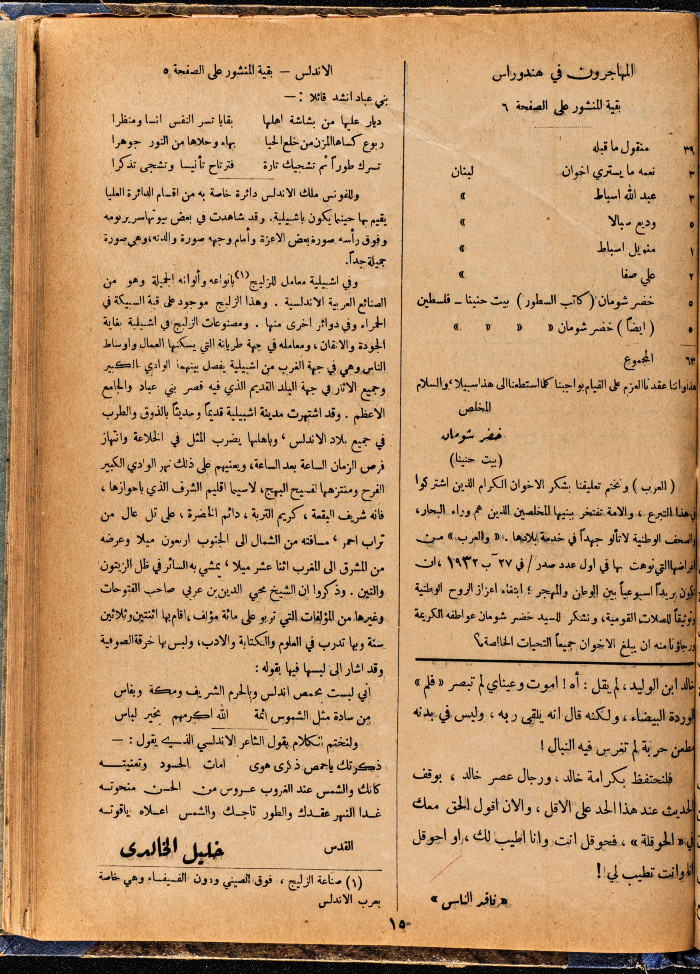 المهاجرون في هندوراس
بقية المنشور على الصفحة ٦
٣٩ منقول ما قبله
٣ نعمه ما يستري اخوان لبنان
٣ عبد الله اسباط »
٥ وديع سيالا »
١ منويل اسباط »
٢ علي صفا »
٥ خضر شومان ( كاتب السطور ) بيت حنينا – فلسطين
٥ ( ايضاً ) خضر شومان « » « » »
٦٣ المجموع
هذا واننا عقدنا العزم على القيام بواجبنا كلما استطعنا الى هذا سبيلا، والسلام
المخلص
خضر شومان
(بيت حنينا)
( العرب ) ونختم تعليقنا بشكر الاخوان الكرام الذين اشتركوا
في هذا التبرع ، والامة تفتخر ببنيها المخلصين الذين هم وراء البحار،
والصحف الوطنية لا تألو جهداً في خدمة بلادها. « والعرب » من
اغراضها التي نوهت بها في اول عدد صدر / في ٢٧ آب ١٩٣٢ ، ان
تكون بريداً اسبوعياً بين الوطن والمهجر ؛ ابتغاء اعزاز الروح الوطنية
وتوثيقاً للصلات القومية، ونشكر للسيد خضر شومان عواطفه الكريمة
ورجاؤنا منه ان يبلغ الاخوان جميعاً التحيات الخالصة؟
خالد ابن الوليد ، لم يقل : أه ! اموت وعيناي لم تبصر « فلم »
الوردة البيضاء ، ولكنه قال انه يلقى ربه ، وليس في بدنه
مطعن حربة لم تغرس فيه النبال !
فلنحتفظ بكرامة خالد ، ورجال عصر خالد ، بوقف
الحديث عند هذا الحد على الاقل ، والان اقول الحق معك
في « الحوقلة » ، فحوقل انت وانا اطيب لك ، او احوقل
انا وانت تطيب لي !!
« ناقد الناس »
الاندلس – بقية المنشور على الصفحة ٥
بني عباد انشد قائلا : —
ديار عليها من بشاشة اهلها بقايا تسر النفس انسا ومنظرا
ربوع كساها المزن من خلع الحيا بهاء وحلاها من النور جوهرا
تسرك طوراً ثم تشجيك تارة فترتاح تأنيسا وتشجى تذكرا
وللفونس ملك الاندلس دائرة خاصة به من اقسام الدائرة العليا
يقيم بها حينما يكون باشبيلية. وقد شاهدت في بعض بيوتها سرير نومه
وفوق رأسه صورة بعض الاعزة وأمام وجهه صورة والدته، وهي صورة
جميلة جداً.
وفي اشبيلية معامل للزليج (١) بانواعه والوانه الجميلة وهو من
الصنائع العربية الاندلسية . وهذا الزليج موجود على قبة السبيكة في
الحمراء وفي دوائر اخرى منها . ومصنوعات الزليج في اشبيلية بغاية
الجودة والاتقان ، ومعامله في جهة طريانة التي يسكنها العمال واوساط
الناس وهي في جهة الغرب من اشبيلية يفصل بينهما الوادي الكبير
وجميع الاثار في جهة البلد القديم الذي فيه قصر بني عباد والجامع
الاعظم . وقد اشتهرت مدينة اشبيلية قديماً وحديثاً بالذوق والطرب
في جميع بلاد الاندلس ، وباهلها يضرب المثل في الخلاعة وانتهاز
فرص الزمان الساعة بعد الساعة، ويعنيهم على ذلك نهر الوادي الكبير
الفرح ومنتزهها لفسيح البهج، لاسيما اقليم الشرف الذي باحوازها ،
فانه شريف البقعة ، كريم التربة ، دائم الخضرة ، على تل عال من
تراب احمر ، مسافته من الشمال الى الجنوب اربعون ميلا وعرضه
من المشرق الى المغرب اثنا عشر ميلا ، يمشي به السائر في ظل الزيتون
والتين . وذكروا ان الشيخ محي الدين بن عربي صاحب الفتوحات
وغيرها من المؤلفات التي تربو على مائة مؤلف، اقام بها اثنتين وثلاثين
سنة وبها تدرب في العلوم والكتابة والادب، ولبس بها خرقة الصوفية
وقد اشار الى لبسها فيها بقوله :
اني لبست بحمص اندلس وبالحرم الشريف ومكة وبفاس
من سادة مثل الشموس ائمة الله اكرمهم بخير لباس
ولنختم الكلام بقول الشاعر الاندلسي الذي يقول : —
ذكرتك ياحمص ذكرى هوى امات الحسود وتعنيته
كانك والشمس عند الغروب عروس من الحسن منحوته
غدا النهر عقدك والطور تاجك والشمس اعلاه ياقوته
القدس خليل الخالدي
(١) صناعة الزليج ، فوق الصيني ودون الفسيفساء وهي خاصة
بعرب الاندلس
١٥